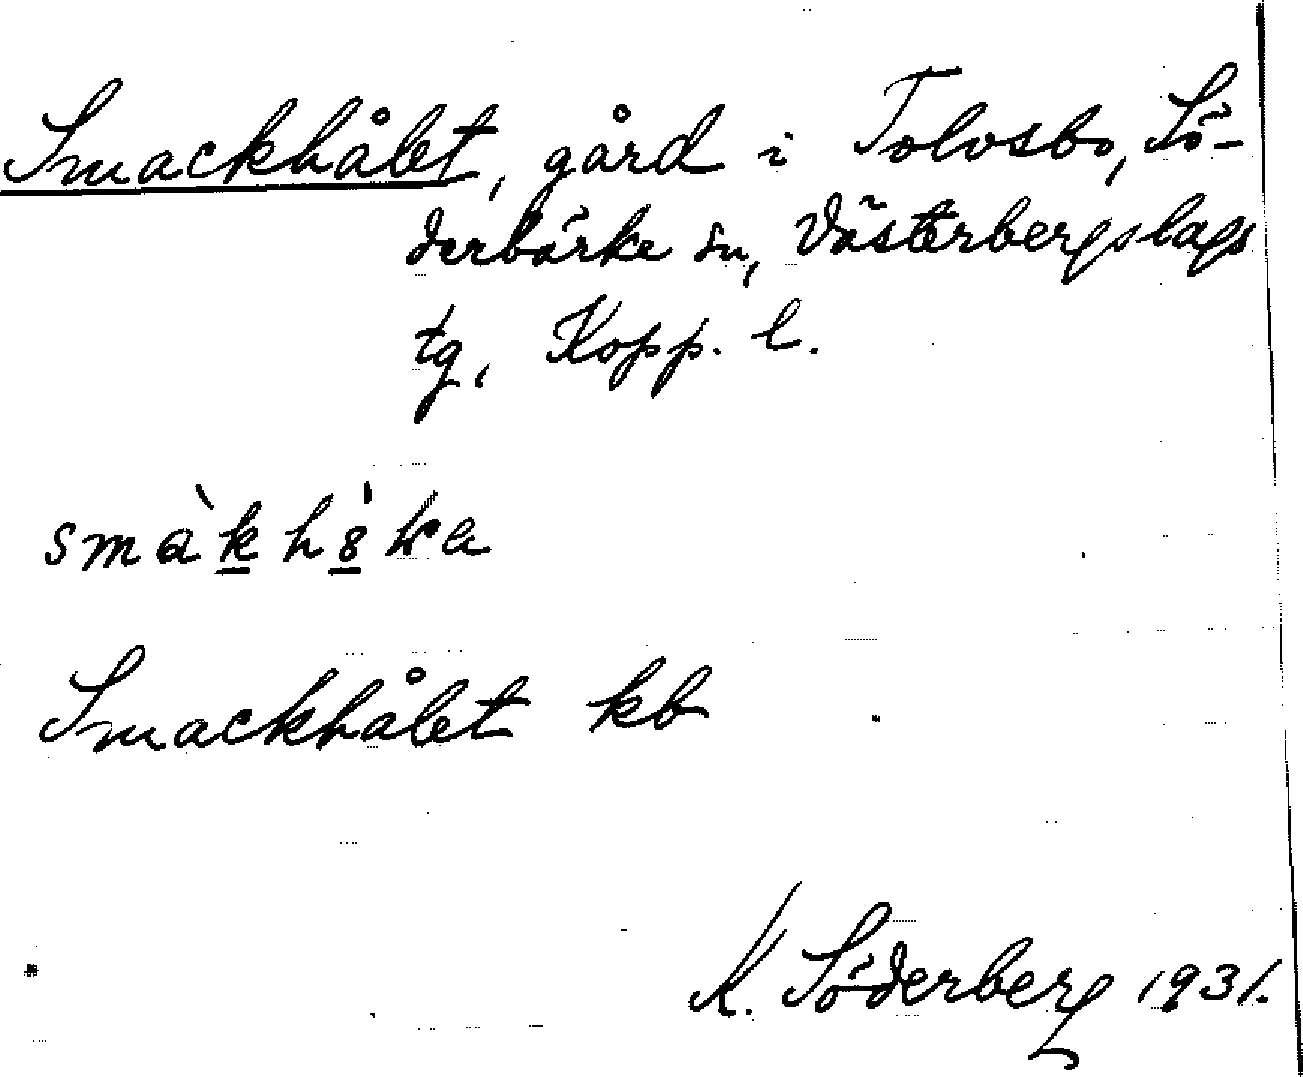 Smackhålet, gård i Tolvsbo, Sö-
derbärke sn, Västerbergslags
tg, Kopp. l.
Smackhålet kb
K. Söderberg 1931.